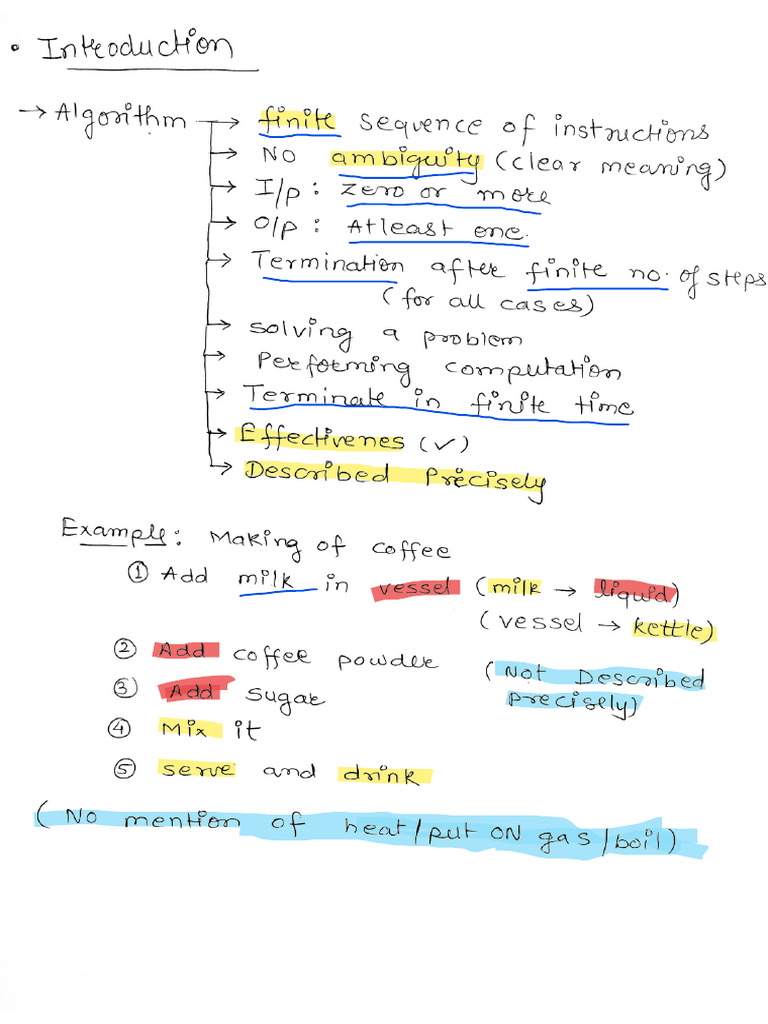 • Introduction
→ Algorithm → finite sequence of instructions
→ NO ambiguity (clear meaning)
→ I/p : zero or more
→ O/p : Atleast one.
→ Termination after finite no. of steps
(for all cases)
→ solving a problem
→ Performing computation
→ Terminate in finite time
→ Effectivenes (✓)
→ Described Precisely
Example: Making of coffee
① Add milk in vessel (milk → liquid)
(vessel → kettle)
② Add coffee powder (Not Described
③ Add sugar precisely)
④ Mix it
⑤ serve and drink
(No mention of heat/put ON gas/boil)